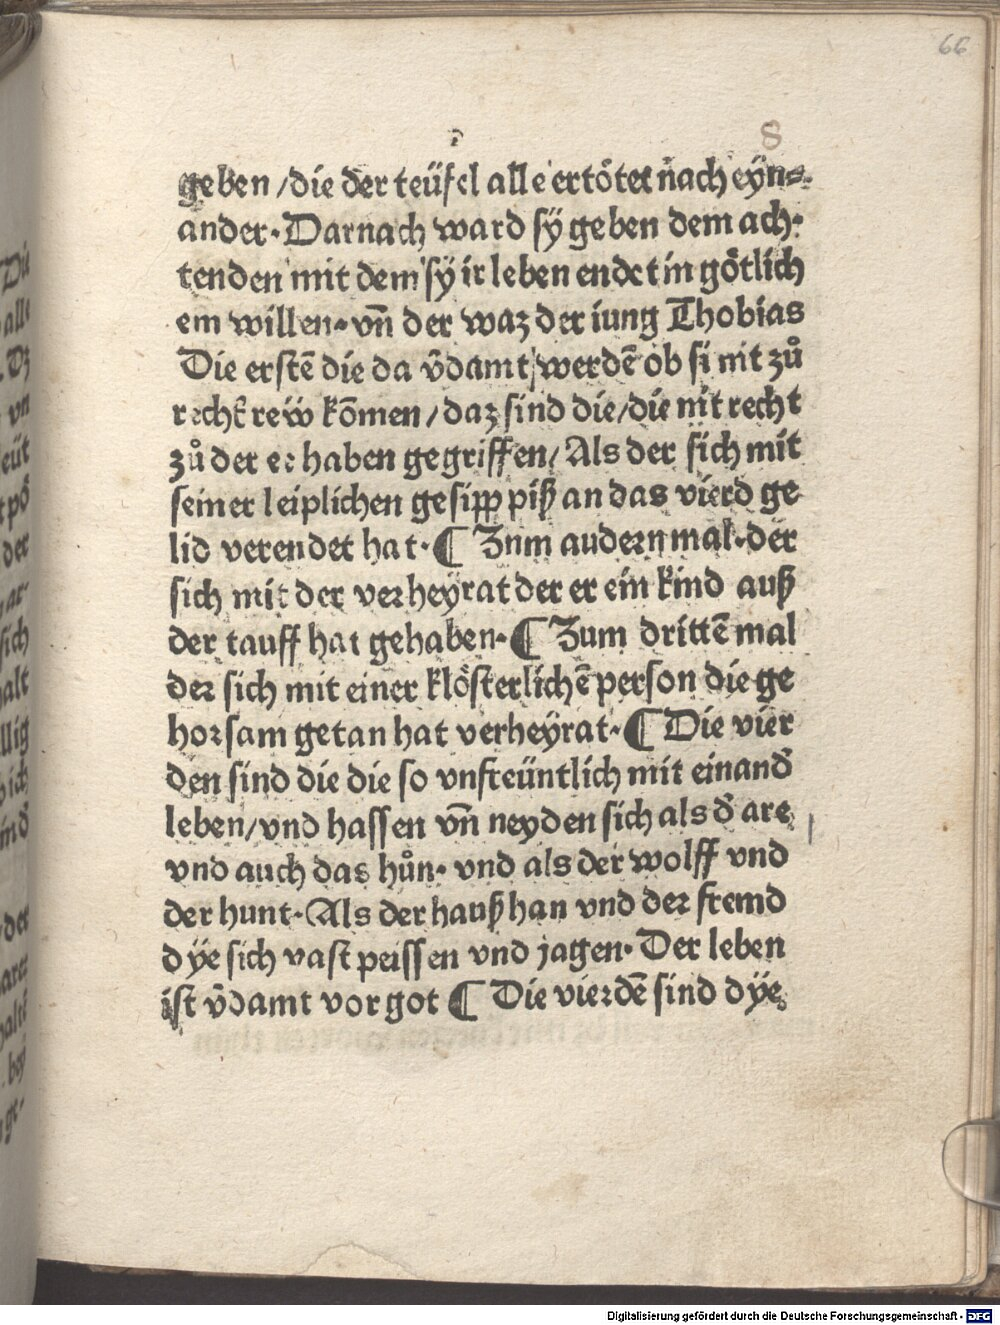 66
8
geben /die der teüfel alle ertötet nach eyn⸗
ander·Darnach ward sÿ geben dem ach·
tenden mit dem sÿ ir leben endet in götlich
em willen·vn̄ der waz der iung Thobias
Die erstē die da v̄damt werdē ob si nit zů
recht rew kōmen/daz sind die/die nit recht
zů der ee haben gegriffen/Als der sich mit
seiner leiplichen gesipp piß an das vierd ge
lid verendet hat·¶ Zum andern mal·der
sich mit der verheyrat der er ein kind auß
der tauff hat gehaben·¶ Zum drittē mal
der sich mit einer klösterlichē person die ge
horsam getan hat verheÿrat·¶ Die vier
den sind die die so vnfreüntlich mit einand̄
leben/vnd hassen vn̄ neyden sich als d̄ are
vnd auch das hůn· vnd als der wolff vnd
der hunt·Als der haußhan vnd der fremd
dÿe sich vast peissen vnd jagen·Der leben
ist v̄damt vor got ¶ Die vierdē sind dÿe
Digitalisierung gefördert durch die Deutsche Forschungsgemeinschaft - DFG